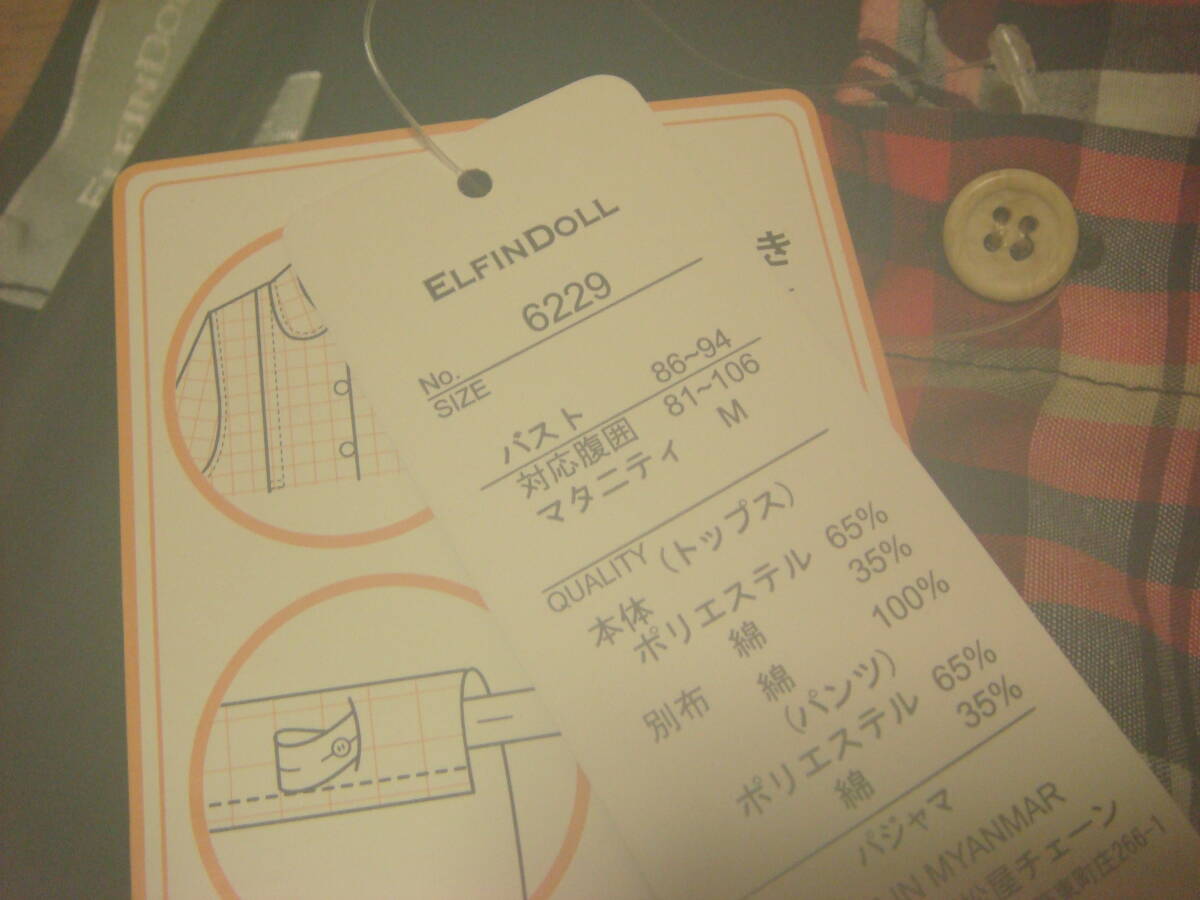 ELFINDO
き
ELFINDOLL
No. 6229
SIZE
バスト 86~94
対応腹囲 81~106
マタニティ M
QUALITY (トップス)
本体
ポリエステル 65%
綿 35%
別布 綿 100%
(パンツ)
ポリエステル 65%
綿 35%
パジャマ
IN MYANMAR
松屋チェーン
東町庄266-1